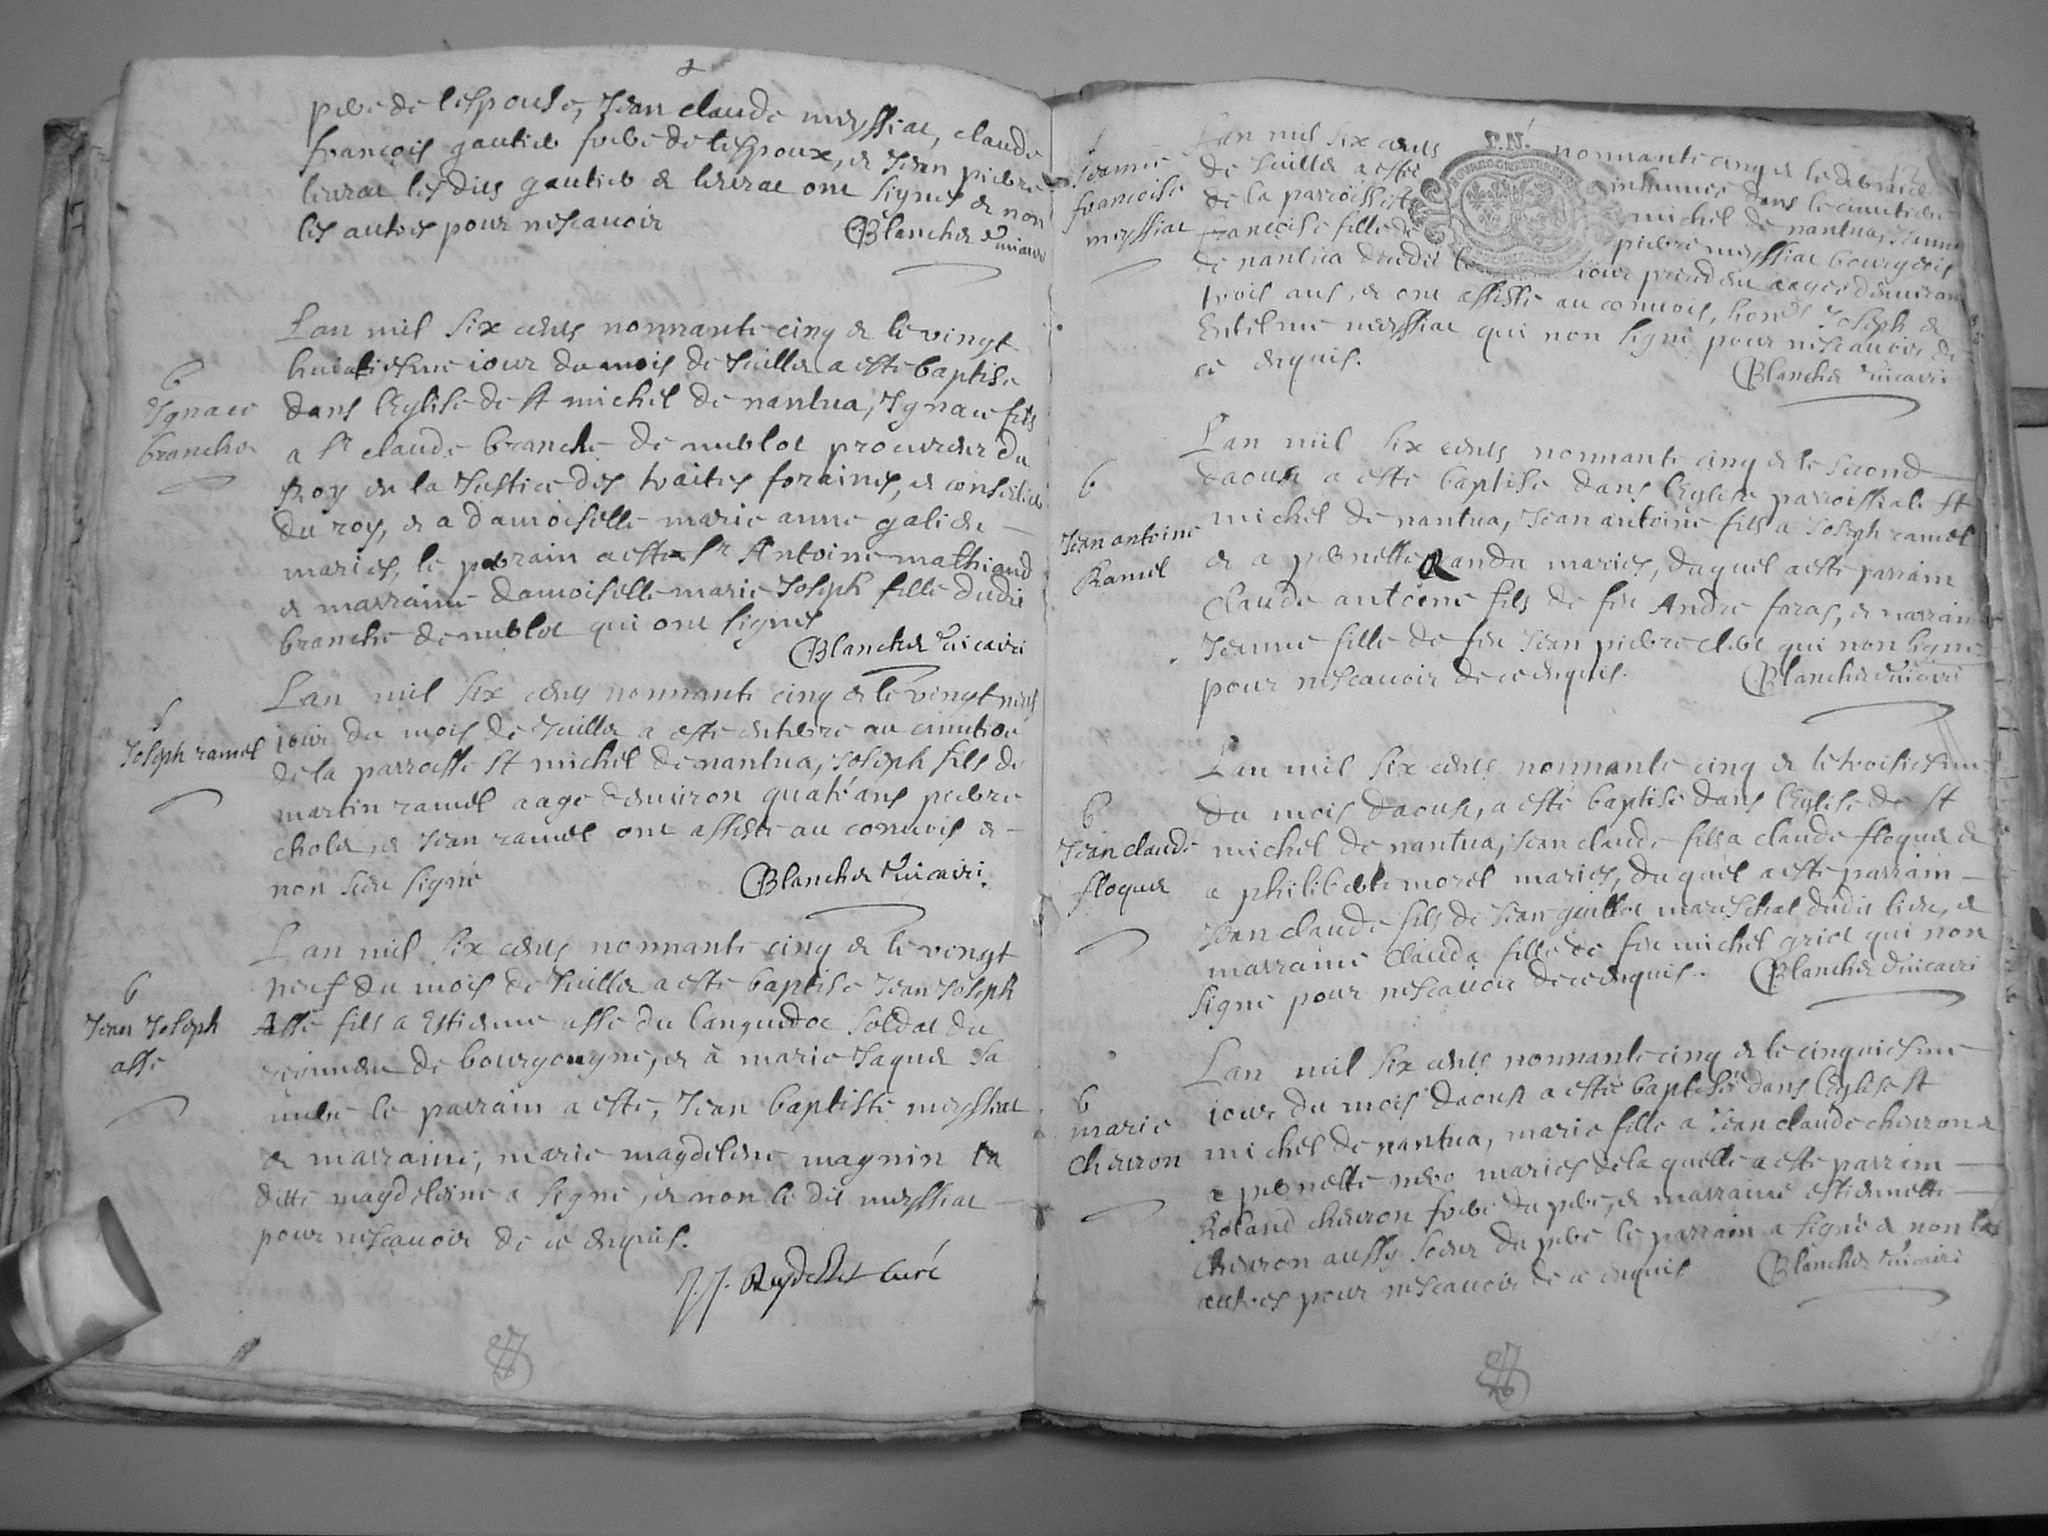 pere de lespouse, Jean claude meyssiat, claude
françois gautier frere de lespoux, et Jean pierre
leurat lesdits gautier et leurat ont signes et non
les autres pour nescavoir
Blanchet vicaire
b
Ignace
branche
Lan mil six cents nonnante cinq et le vingt
huictiesme iour du mois de Juillet a esté baptise
dans leglise de st michel de nantua, Ignace fils
a sr claude branche de nublot procureur du
Roy en la Justice des traites foraines, et conseiller
du roy, et a damoiselle marie anne galien
maries, le parrain a esté sr Antoine mathiaud
et marraine damoiselle marie Joseph fille dudit
branche de nublot qui ont signes
Blanchet vicaire
s
Joseph ramel
Lan mil six cents nonnante cinq et le vingt neuf
iour du mois de Juillet a esté enterre au cimetiere
de la parroisse st michel de nantua, Joseph fils de
martin ramel aagé denviron quatre ans pierre
cholet, et Jean ramel ont assisté au convois et
non sceu signé
Blanchet vicaire
b
Jean Joseph
assé
Lan mil six cents nonnante cinq et le vingt
neuf du mois de Juillet a esté baptise Jean Joseph
Assé fils a Estienne assé du languedoc soldat du
regiment de bourgougne, et à marie Jaquet sa
le parrain a esté, Jean baptiste meyssiat
et marraine, marie magdeleine magnin la
ditte magdeleine a signé, et non le dit meyssiat
pour nescavoir de ce enquis.
J. J. Curé
s
Jeanne
françoise
meyssiat
Lan mil six cents nonnante cinq et le
de Juillet a esté inhumée dans le cimetiere
de la parroisse st michel de nantua, Jeanne
françoise fille de pierre meyssiat bourgeois
de nantua dudit iour aagée denviron
trois ans, et ont assisté au convois, Joseph et
meyssiat qui non signé pour nescavoir de
ce enquis.
Blanchet vicaire
b
Jean antoine
Ramel
Lan mil six cents nonnante cinq et le second
daoust a esté baptise dans leglise parroissiale st
michel de nantua, Jean antoine fils a Joseph ramel
et a pernette Randu maries, duquel a esté parrain
Claude antoine fils de feu André faras, et marraine
Jeanne fille de feu Jean pierre qui non signé
pour nescavoir de ce enquis.
Blanchet vicaire
b
Jean claude
floquet
Lan mil six cents nonnante cinq et le troisiesme
du mois daoust, a esté baptisé dans leglise de st
michel de nantua, Jean claude fils a claude floquet et
a philiberte morel maries, duquel a esté parrain
Jean claude fils de Jean guillot mareschal dudit lieu, et
marraine Clauda fille de feu michel qui non
signé pour nescavoir de ce enquis.
Blanchet vicaire
b
marie
cheuron
Lan mil six cents nonnante cinq et le cinquiesme
iour du mois daoust a esté baptisée dans leglise st
michel de nantua, marie fille a Jean claude cheuron et
a pernette maries de la quelle a esté parrain
Roland cheuron frere du pere, et marraine estiennette
cheuron aussy soeur du pere le parrain a signé et non les
autres pour nescavoir de ce enquis
Blanchet vicaire